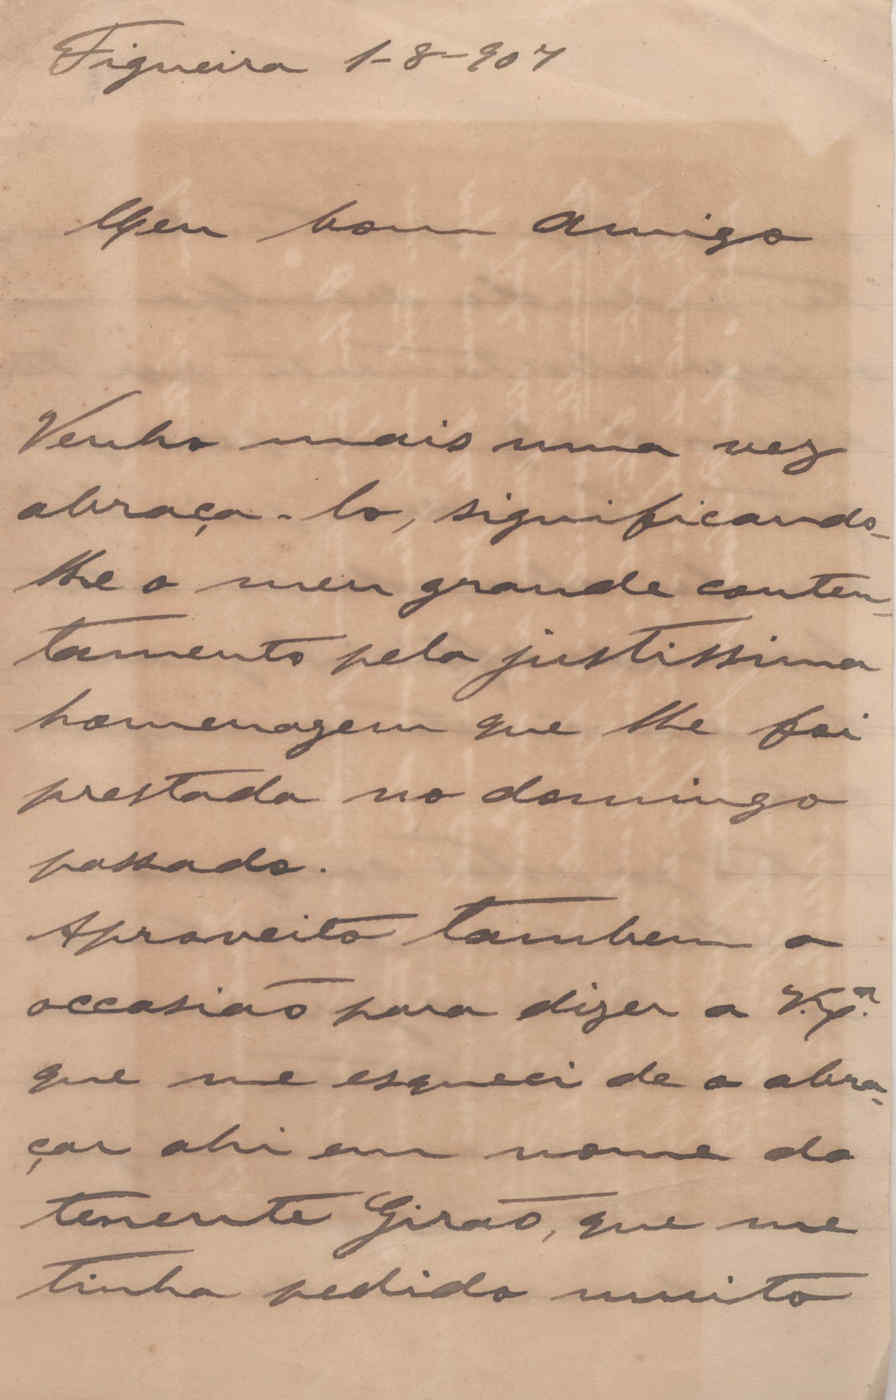 Figueira 1-8-907
Meu bom Amigo
Venho mais uma vez
abraça-lo, significando-
lhe o meu grande conten-
tamento pela justissima
homenagem que lhe foi
prestada no domingo
passado.
Aproveito tambem a
occasião para dizer a
que me esqueci de o abra-
çar ahi em nome do
tenente Girão, que me
tinha pedido muito